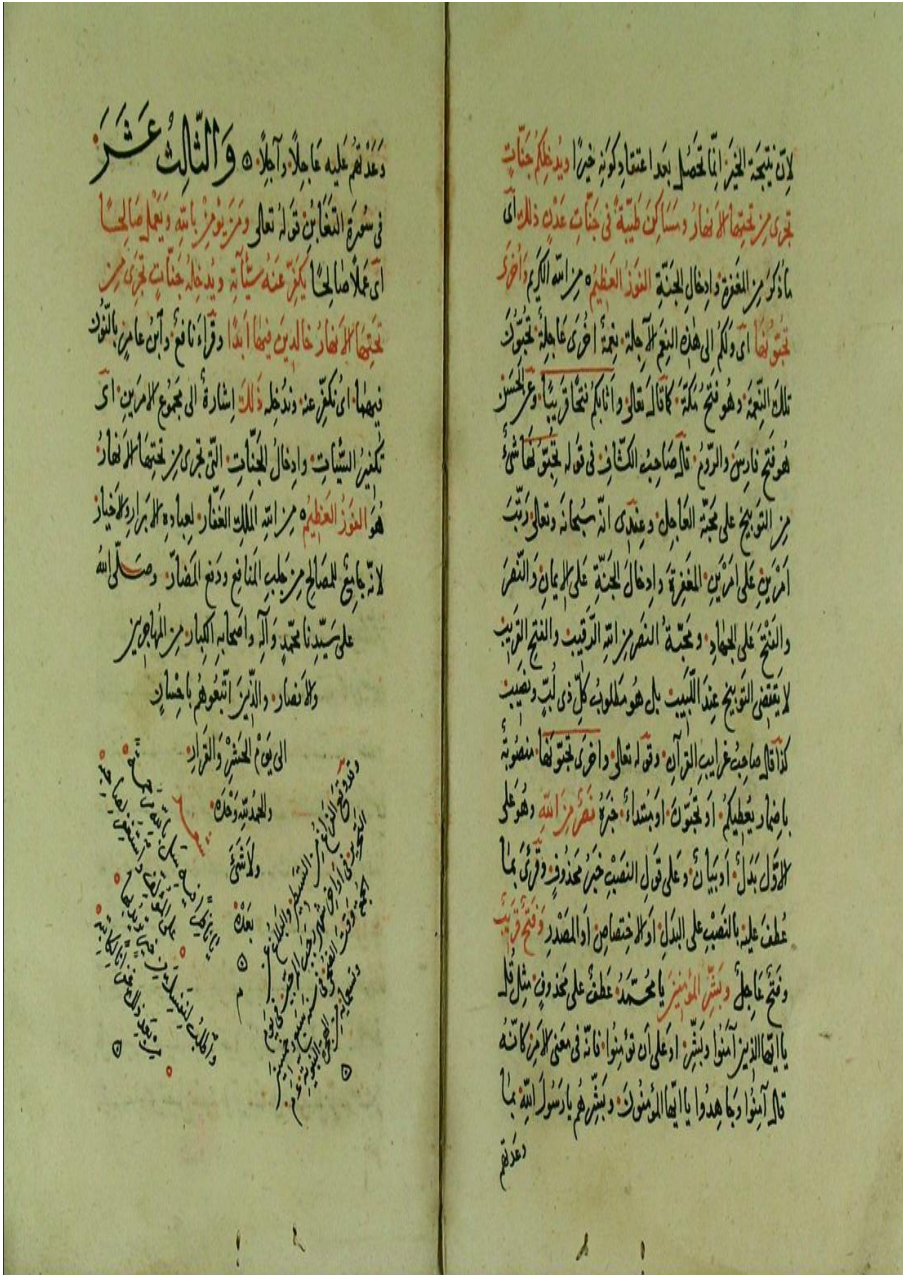 لانّ نتيجة الخير انّما تحصل بعد اعتقاد كونه خيرًا ويدخلكم جنّات
تجرى من تحتها الانهار ومساكن طيّبة فى جنّات عدن ذلك اى
ما ذكر من المغفرة وادخال الجنّة الفوز العظيم من الله الكريم واخرى
تحبّونها اى ولكم الى هذه النعم الآجلة نعمة اخرى عاجلة تحبّون
تلك النّعمة وهو فتح مكّة كما قال تعالى واثابكم فتحا قريبًا وعن الحسن
هو فتح فارس والرّوم قال صاحب الكشّاف فى قوله تحبّونها شئ
من التوبيخ على محبّة العاجل وعندى انّه سبحانه وتعالى رتّب
امرين على امرين المغفرة وادخال الجنّة على الايمان والنّصر
والفتح على الجهاد ومحبّة النصر من الله الرّقيب والفتح القريب
لا يقتضى التوبيخ عند اللّبيب بل هو مطلوب كلّ ذى لبّ ونصيب
كذا قال صاحب غرايب القرآن وقوله تعالى واخرى تحبّونها منصوبة
باضمار يعطيكم او تحبّون او مبتداء خبره نصر من الله وهو على
الاوّل بدل او بيان وعلى قول النصب خبر محذوف وقرئ بما
عطف عليه بالنّصب على البدل او الاختصاص او المصدر وفتح قريب
وفتح عاجل وبشّر المؤمنين يا محمّد عطف على محذوف مثل قل
يا ايّها الذين آمنوا وبشّر او على ان تؤمنوا فانّه فى معنى الامر كانّه
قال آمنوا وجاهدوا يا ايّها المؤمنون وبشّرهم يا رسول الله بما
وعدتهم
وعدتهم عليه عاجلًا وآجلًا والثّالث عشر
فى سورة التغابن قوله تعالى ومن يؤمن بالله ويعمل صالحًا
اى عملًا صالحًا يكفّر عنه سيّآته ويدخله جنّات تجرى من
تحتها الانهار خالدين فيها ابدًا وقراء نافع وابن عامر بالنّون
فيهما اى نكفّر عنه وندخله ذلك اشارة الى مجموع الامرين اى
تكفير السّيّئات وادخال الجنّات التّى تجرى من تحتها الانهار
هو الفوز العظيم من الله الملك الغفّار لعباده الابرار الاخيار
لانّه جامع للمصالح من جلب المنافع ودفع المضارّ وصلّى الله
على سيّدنا محمّد وآله واصحابه الكبار من المهاجرين
والانصار والّذين اتّبعوهم باحسان
الى يوم الحشر والقرار
والحمد لله وحده
ولا شئ
بعده
م
وقد وقع الفراغ من
التحرير فى اواخر شهر رجب
وقت الضحى فى سنة
يا ناظرًا فيه سل بالله مرحمة
على المؤلّف واستغفر لصاحبه
واطلب لنفسك من خير تريد بها
من بعد ذلك غفرانًا لكاتبه